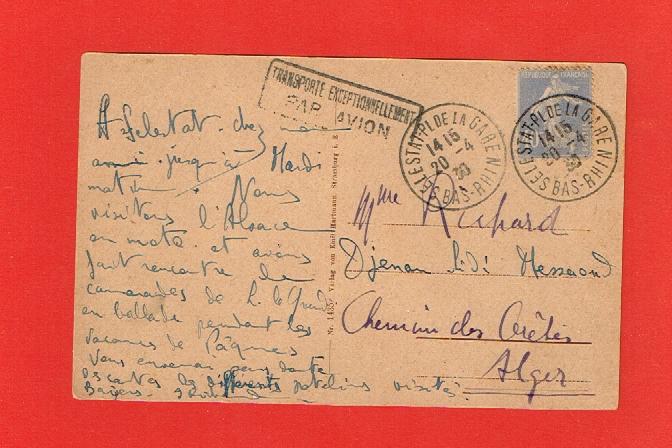 TRANSPORTE EXCEPTIONNELLEMENT
PAR AVION
RÉPUBLIQUE FRANÇAISE
SELESTAT-PL DE LA GARE
14 15
20-4
30
BAS-RHIN
SELESTAT-PL DE LA GARE
14 15
20-4
30
BAS-RHIN
A Selestat. chez
jusqu'à Mardi
matin. Nous
visitons l'Alsace
en moto. et avons
fait rencontre de
camarades de L. le Grand
en ballade pendant les
vacances de Pâques
Vous enverrai sans doute
des cartes des différents patelins visités.
Baisers.
Nr. Verlag von Emil Hartmann, Strassburg i. E.
Mme
Djenan Sidi Messaoud
Chemin des Crêtes
Alger